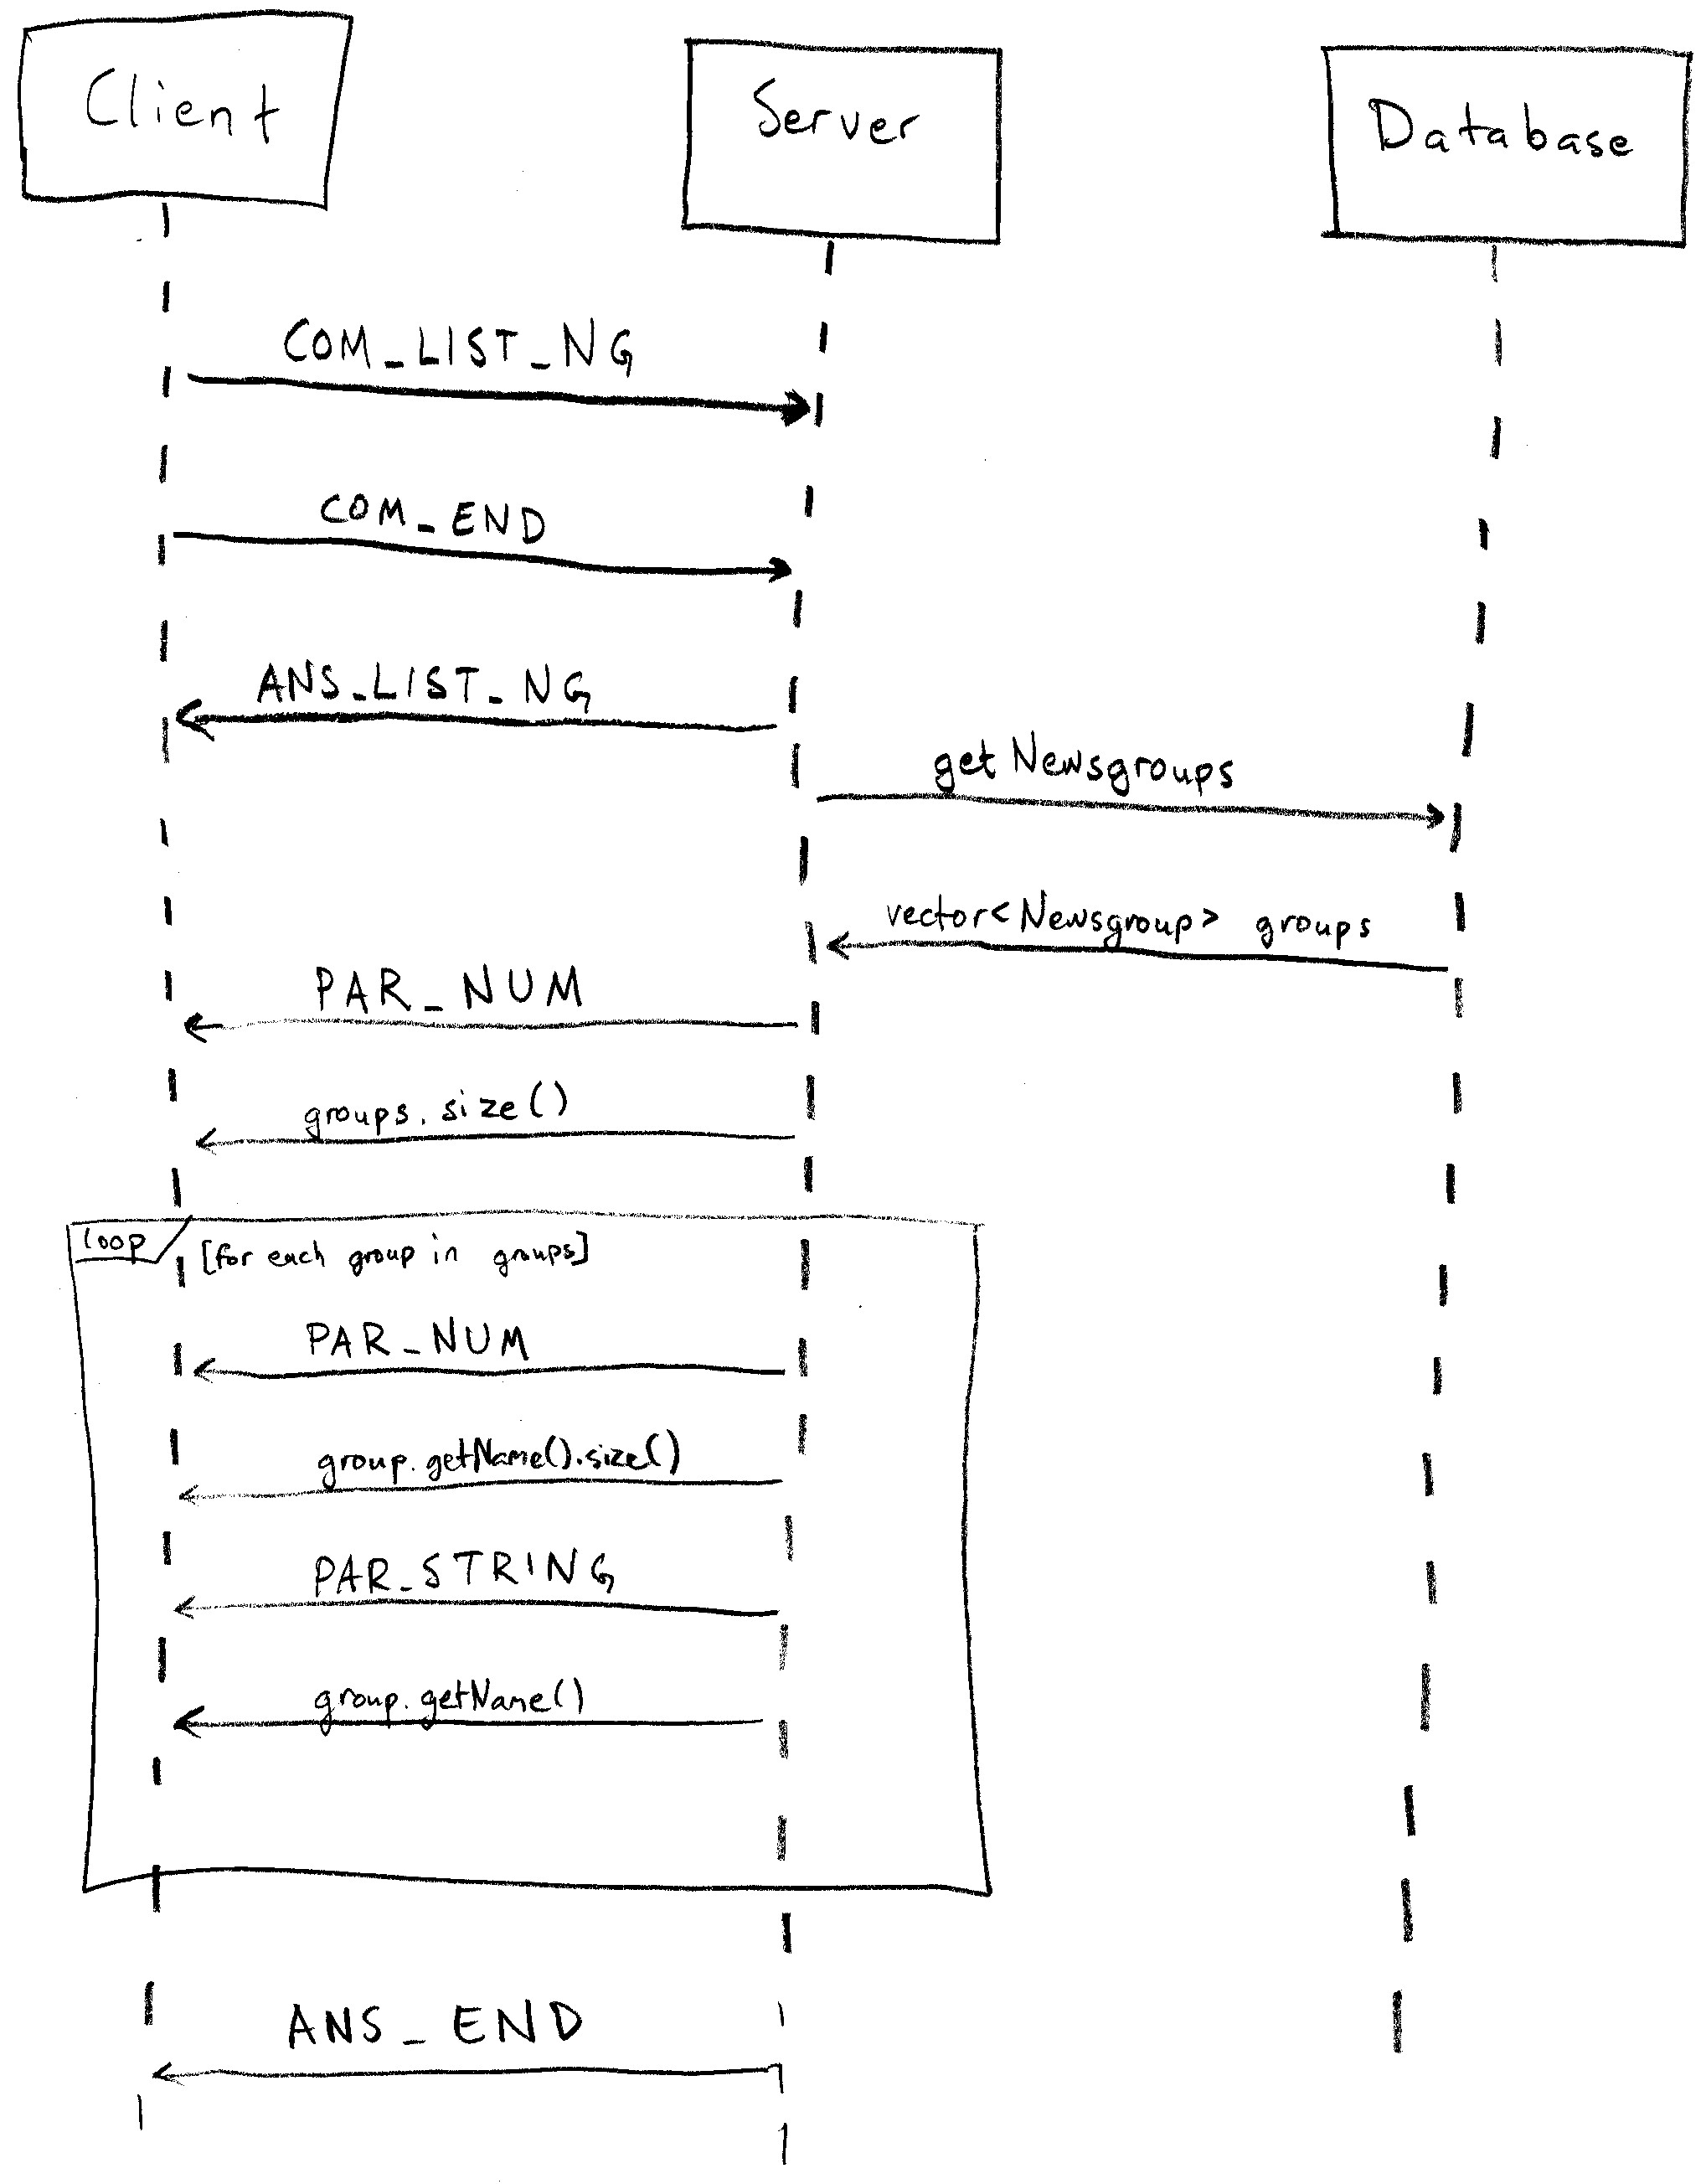 Client
Server
Database
COM_LIST_NG
COM_END
ANS_LIST_NG
getNewsgroups
vector<Newsgroup> groups
PAR_NUM
groups.size()
loop
[for each group in groups]
PAR_NUM
group.getName().size()
PAR_STRING
group.getName()
ANS_END